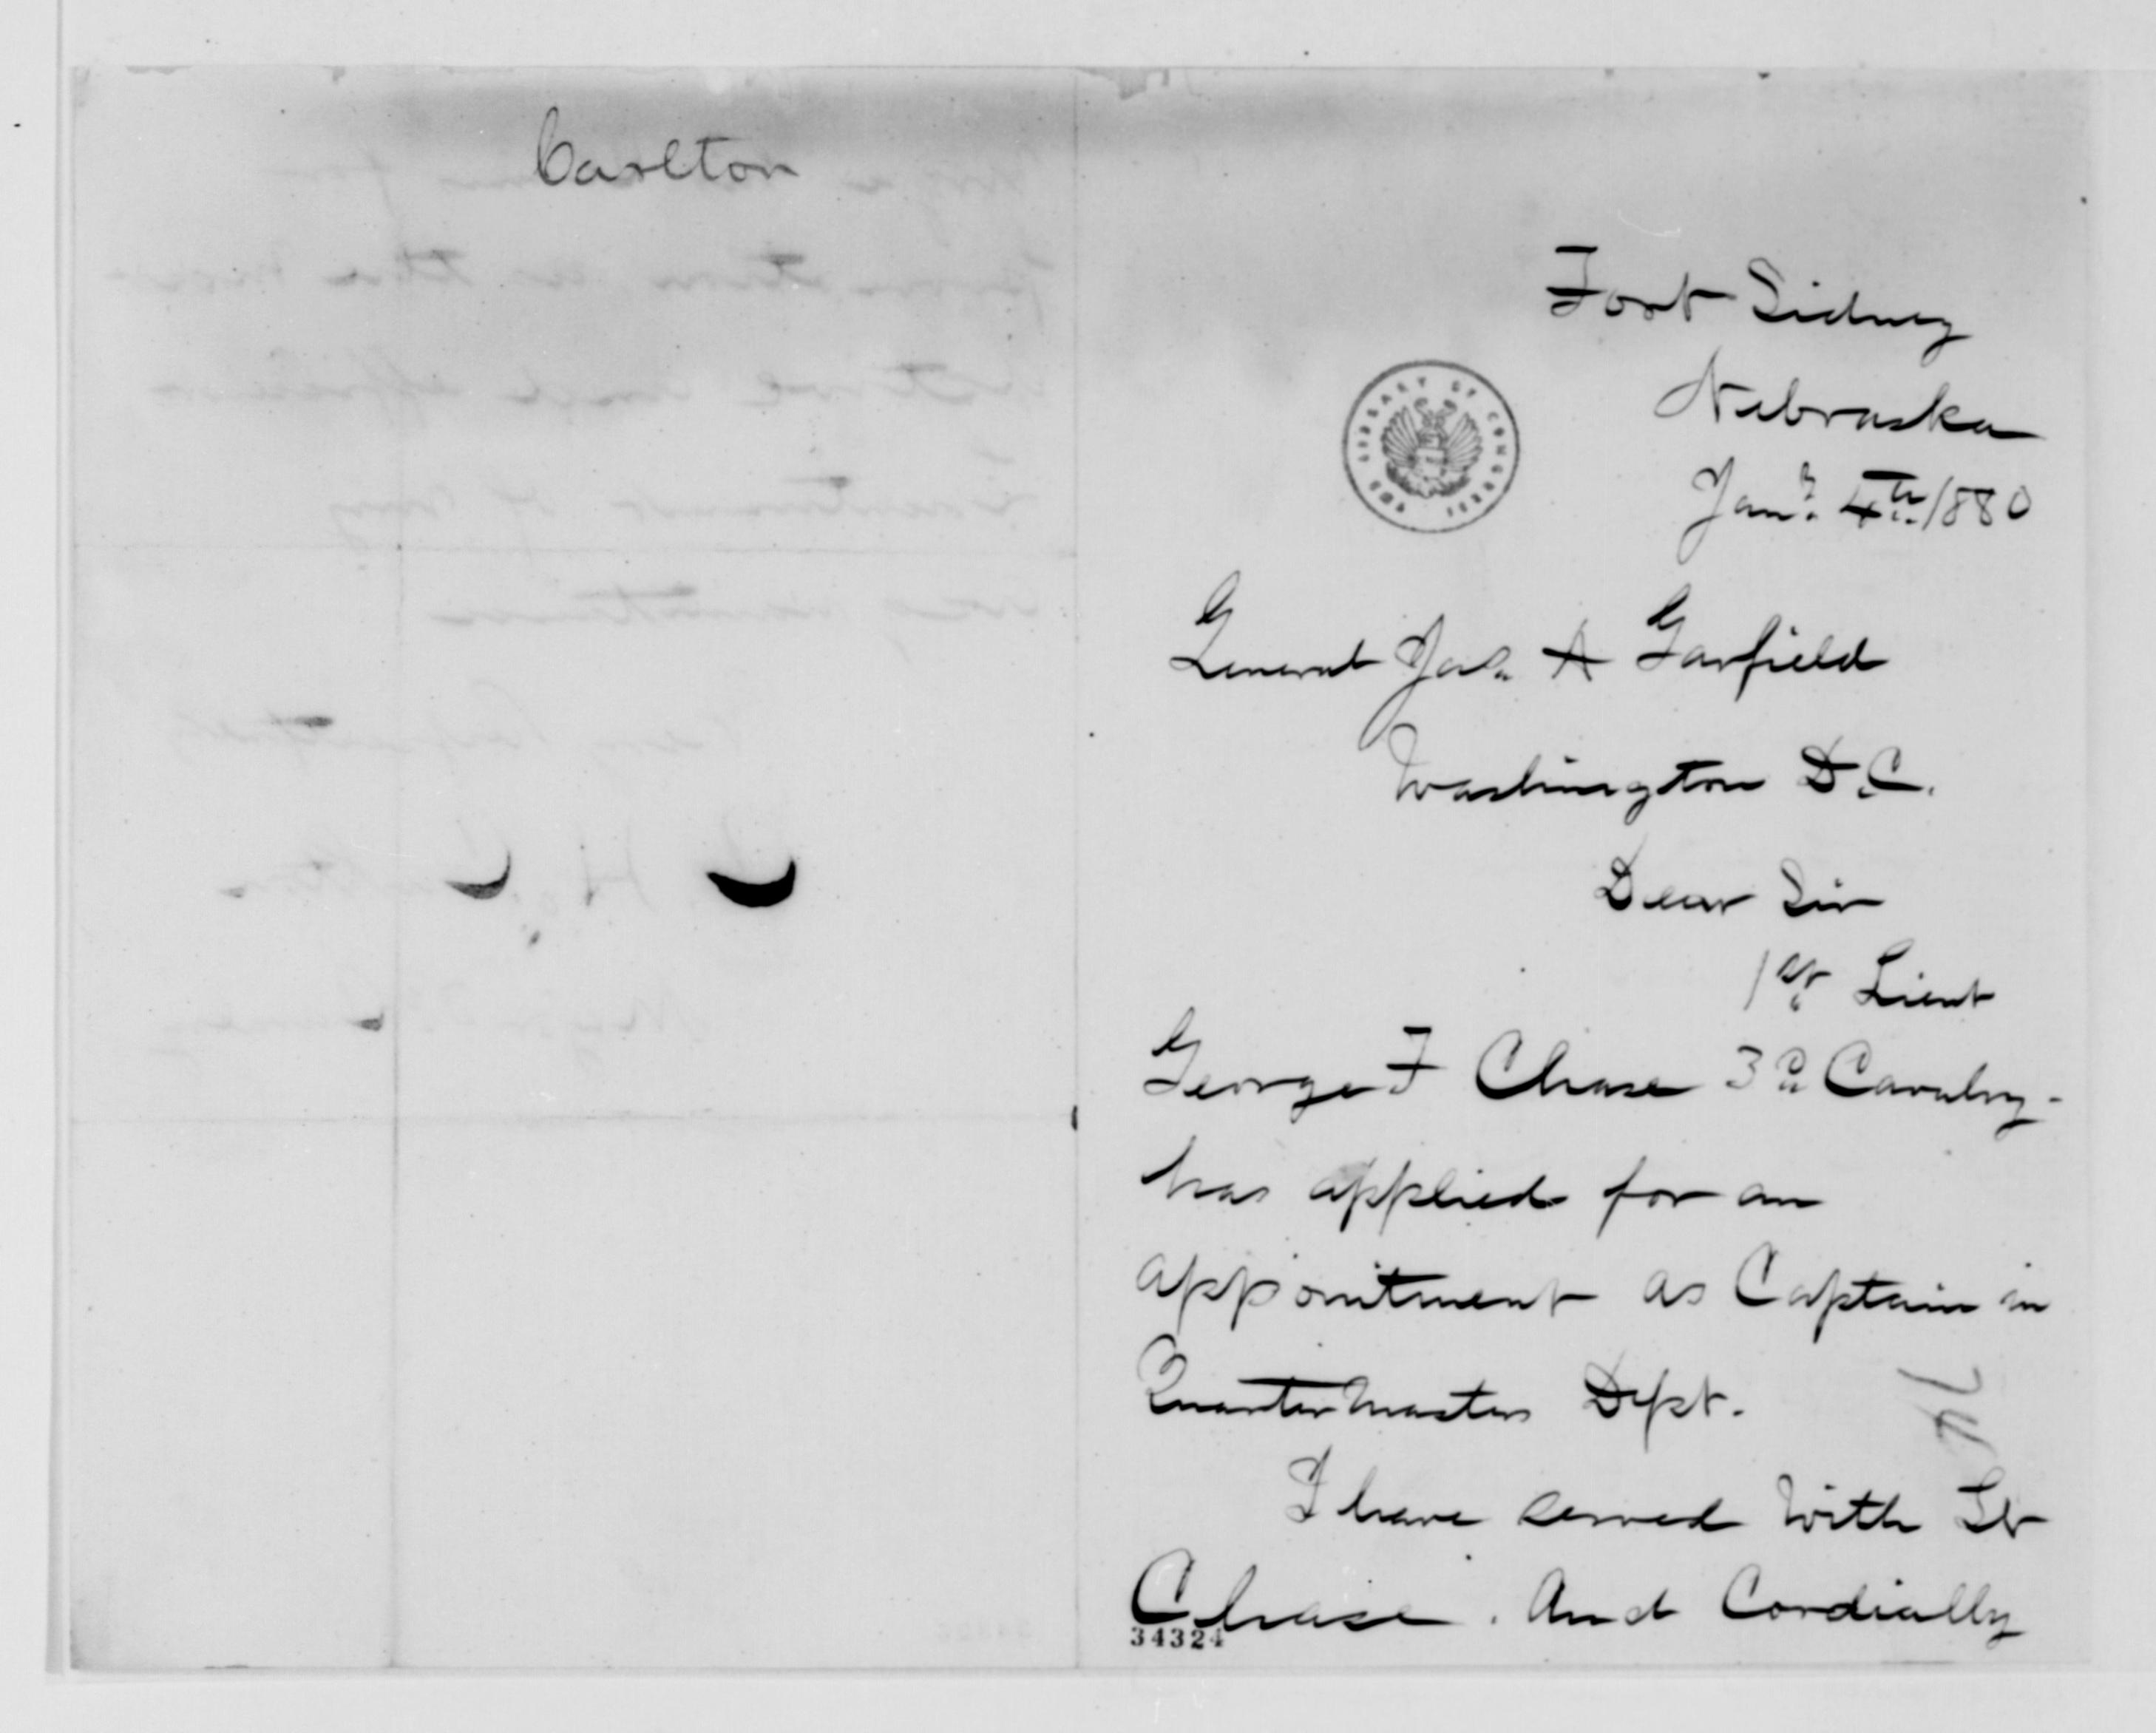 Carlton
Fort Sidney
Nebraska
Jany. 4th. 1880
THE LIBRARY OF CONGRESS
General Jas. A Garfield
Washington D.C.
Dear Sir
1st Lieut
George F Chase 3d Cavalry-
has applied for an
appointment as Captain in
Quartermasters Dept.
I have served with Lt
Chase. And Cordially
34324